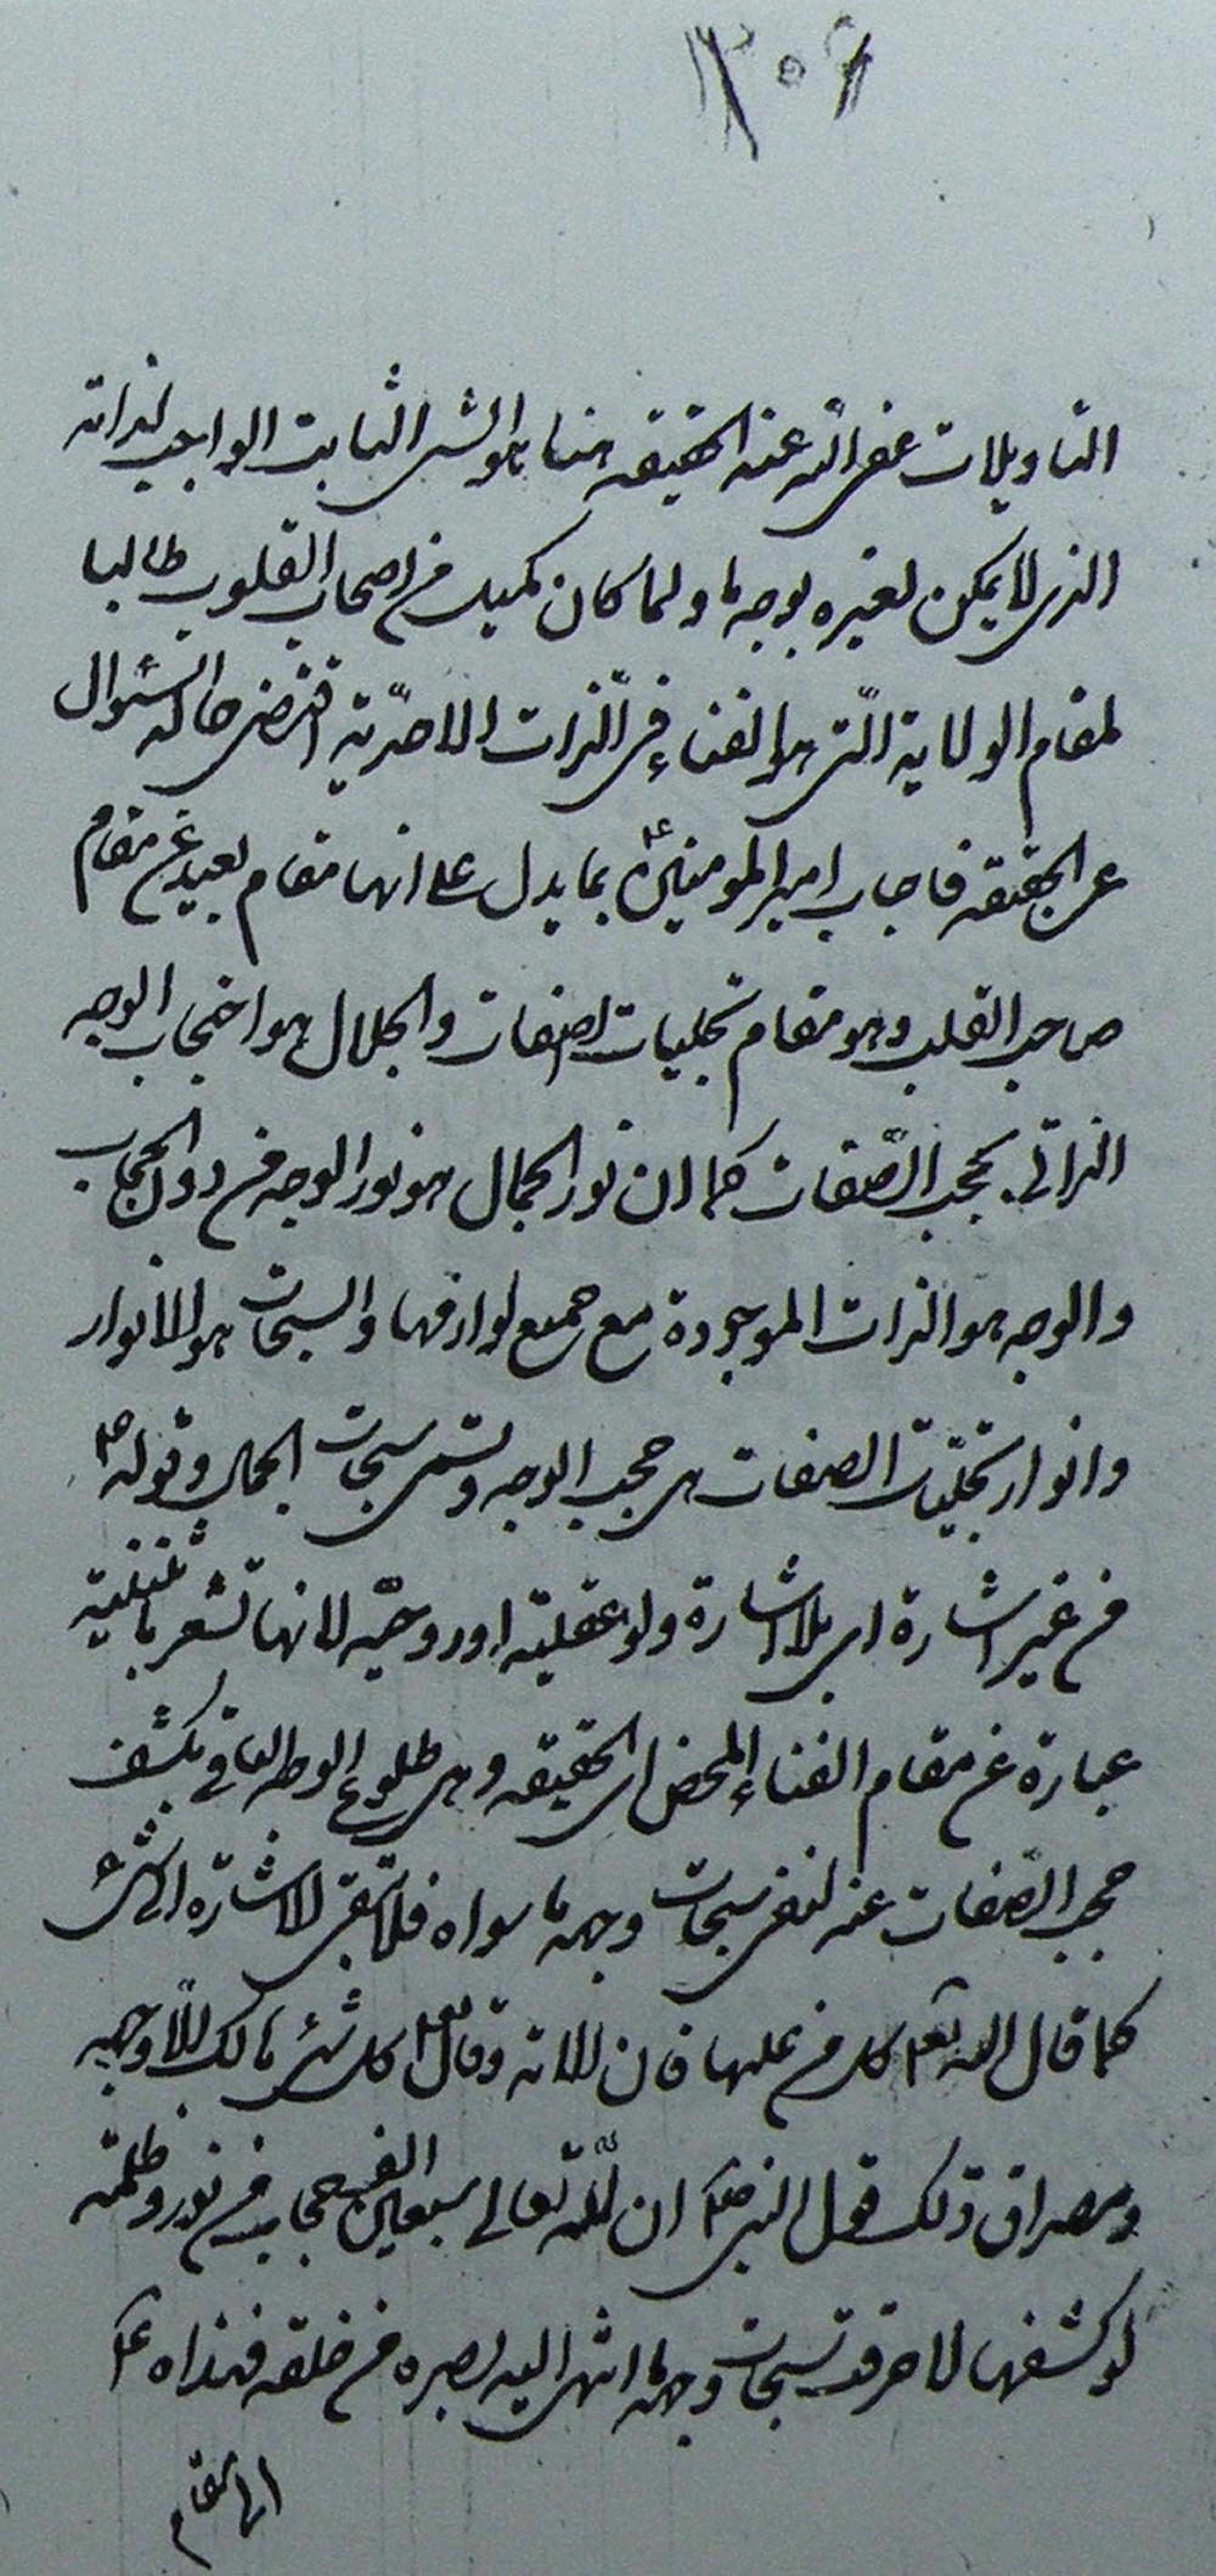 ۳۰۶
التاویلات غفر الله عنه الحقیقه هنا هو الشی الثابت الواجب لذاته
الذی لا یمکن لغیره بوجه ما و لما کان کمیل من اصحاب القلوب طالبا
لمقام الولایة الّتی هو الفناء فی الّذات الاحدّیة اقتضی حاله السّئوال
عن الحقیقه فاجاب امیر المومنین ع بما یدل علی انها مقام بعید عن مقام
صاحب القلب و هو مقام تجلیات الصفات و الجلال هو احتجاب الوجه
الذاتی بحجب الصّفات کما ان نور الجمال هو نور الوجه من دون الحجاب
و الوجه هو الذات الموجودة مع جمیع لوازمها و السبحات هو الانوار
و انوار تجلیّات الصفات هی حجب الوجه و تسمی سبحات الجمال و قوله ع
من غیر اشارة ای بلا اشارة و لو عقلیّة او روحیّه لانها تشعر بالاثنینیّة
عبارة عن مقام الفناء المحض ای الحقیقه و هی طلوع الوجه الباقی بکشف
حجب الصّفات عنه لتفنی سبحات وجهه ما سواه فلا تبقی الاشارة الی شئ
کما قال الله تعم کل من علیها فان الایة و قال تعم کل شئ هالک الّا وجهه
و مصداق ذلک قول النبی صلعم ان للّه تعالی سبعین الف حجاب من نور و ظلمة
لو کشفها لاحرقت سبحات وجهه ما انتهی الیه بصره من خلقه فهداه ع
الی مقام